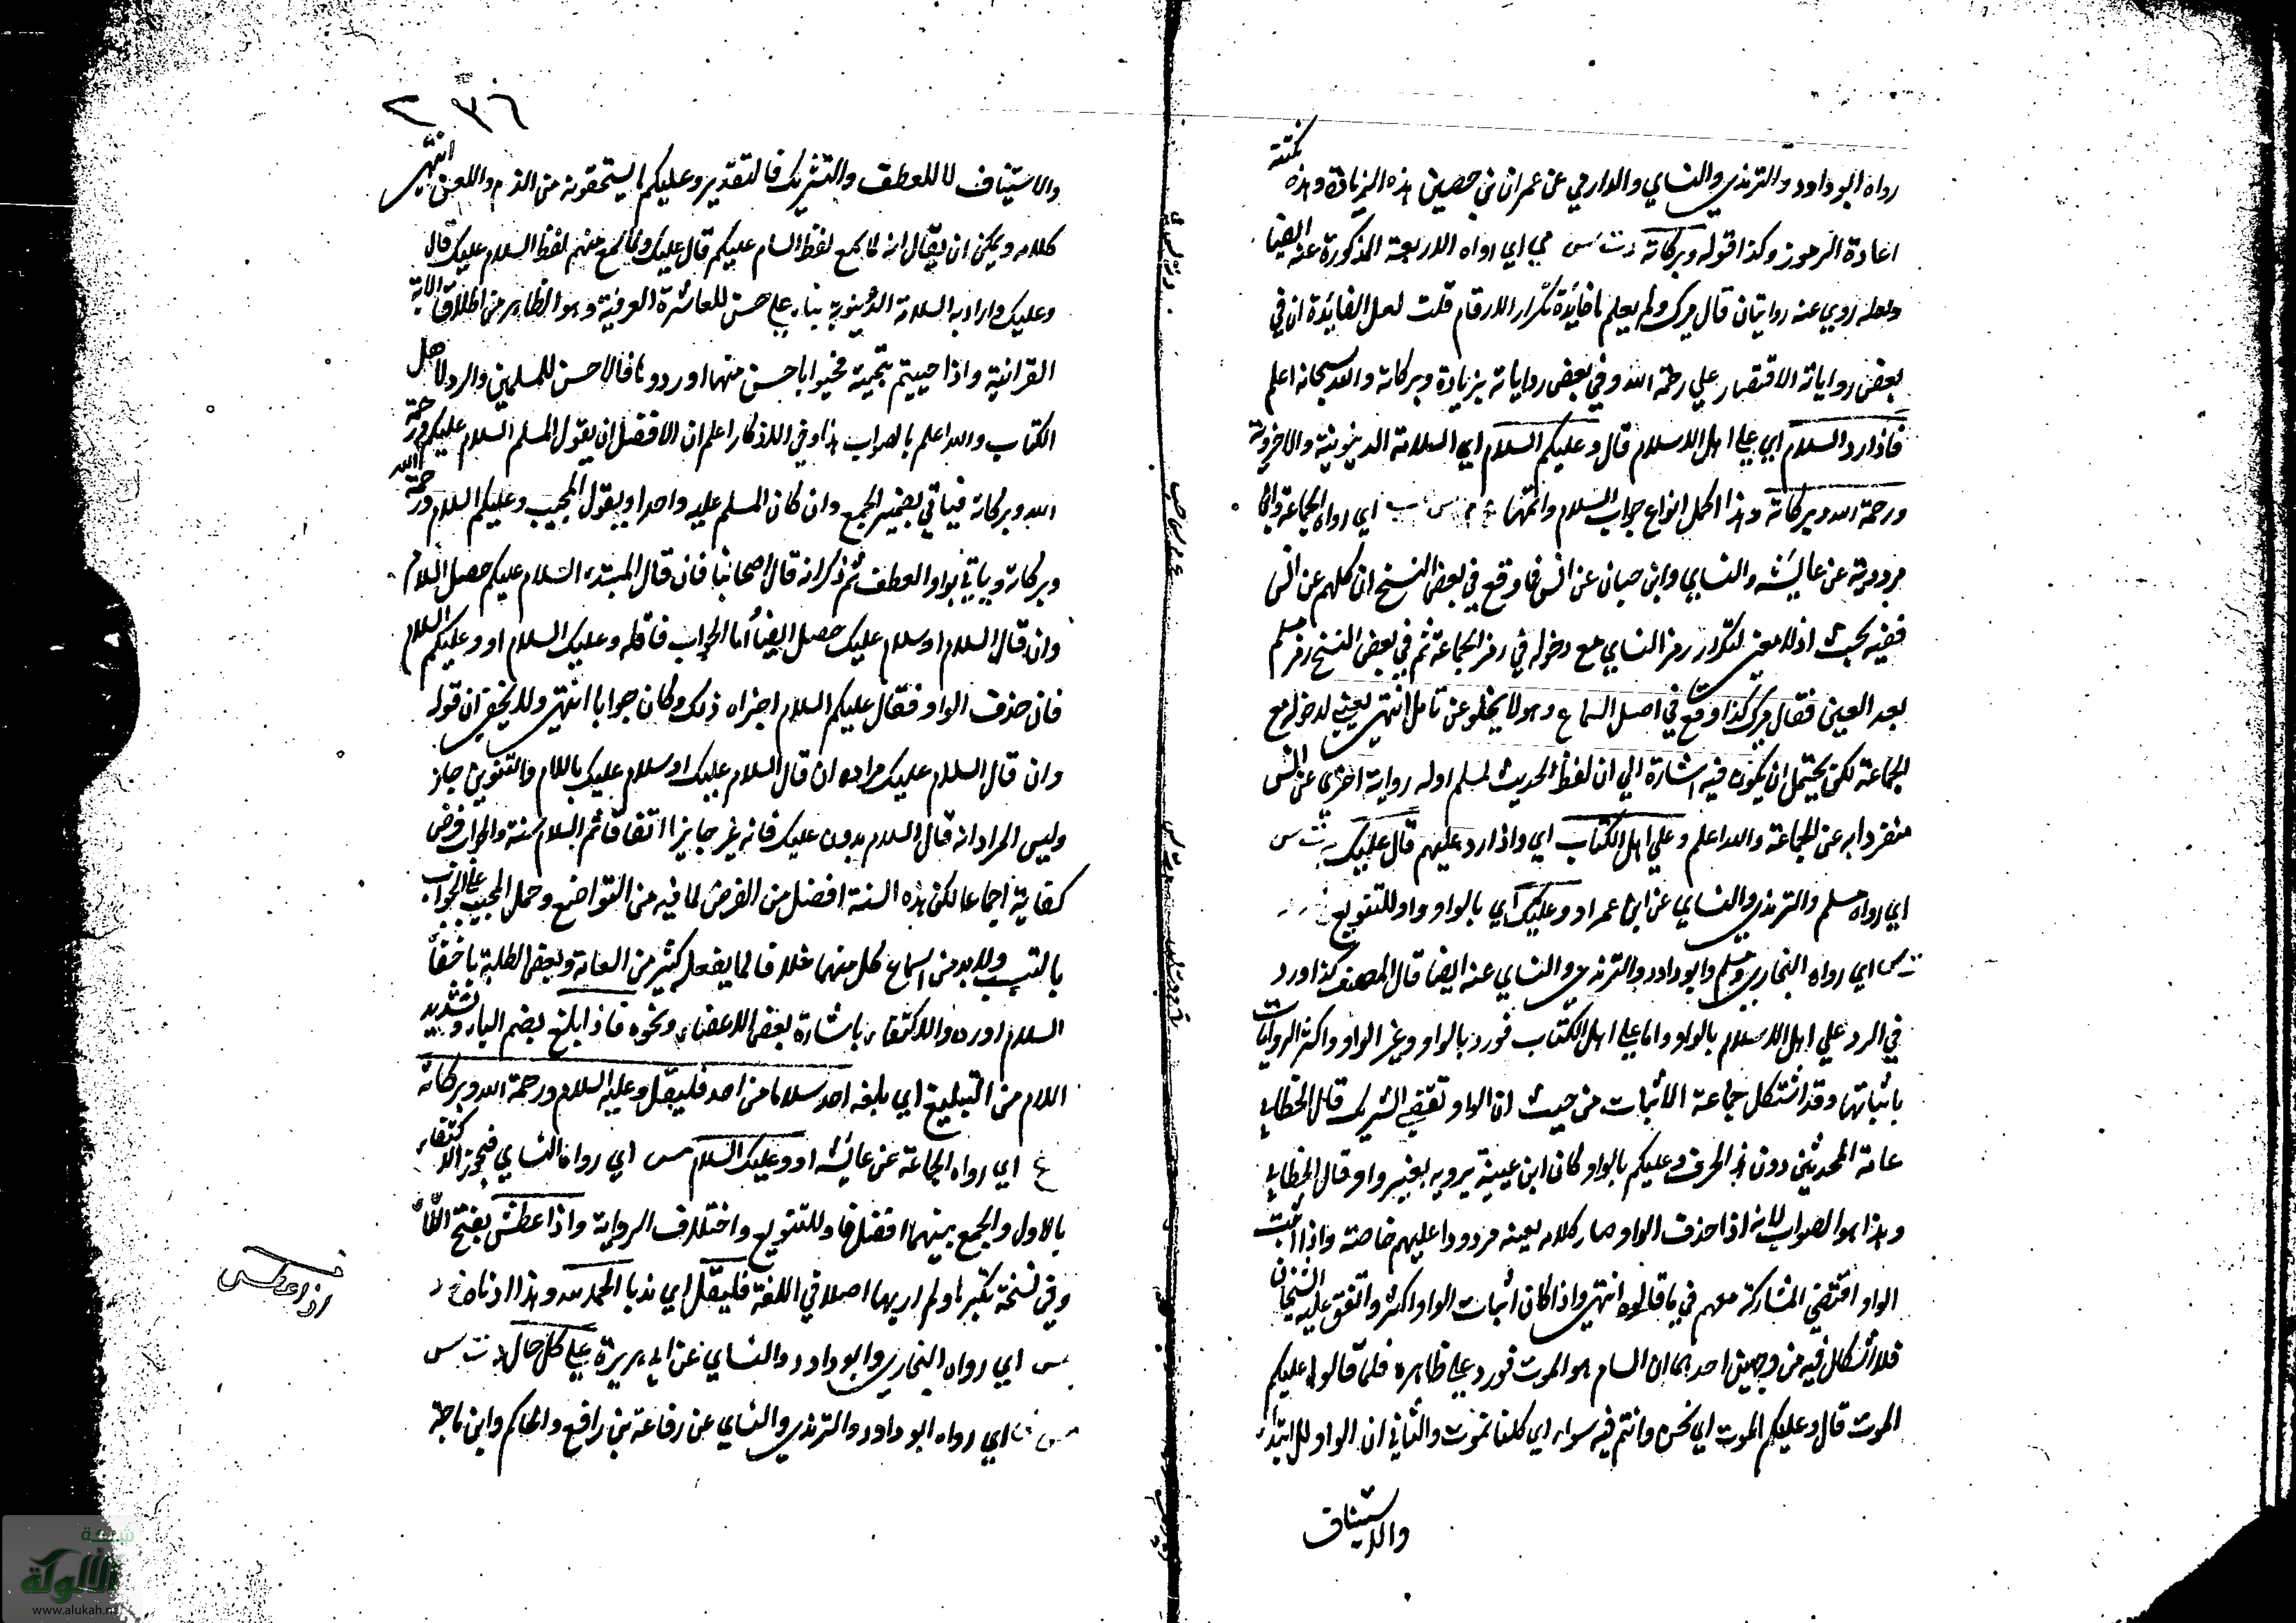 رواه ابو داود والترمذي والنساي والدارمي عن عمران بن حصين هذه الزيادة وهذه نكتة
اعادة الرموز وكذا قوله وبركاته د ت س مي اي رواه الاربعة المذكورة عنه ايضا
ولعله روي عنه روايتان قال ميرك ولم يعلم ما فايدة تكرار الارقام قلت لعل الفايدة ان في
بعض رواياته الاقتصار علي رحمة الله وفي بعض رواياته بزيادة وبركاته والله سبحانه اعلم
فاذا رد السلام اي علي اهل الاسلام قال وعليكم السلام اي السلامة الدينوية والاخروية
ورحمة الله وبركاته وهذا اكمل انواع جواب السلام واتمها ع س حب اي رواه الجماعة
مروية عن عايشة والنساي وابن حبان عن انس فما وقع في بعض النسخ ان كلهم عن انس
ففيه بحث اذ لا معني لتكرار رمز النساي مع دخوله في رمز الجماعة ثم في بعض النسخ رمز مسلم
بعد العين فقال ميرك كذا وقع في اصل السماع وهو لا يخلو عن تامل انتهي يعني لدخوله مع
الجماعة لكن يحتمل ان يكون فيه اشارة الي ان لفظ الحديث لمسلم او له رواية اخري عن انس
منفردا به عن الجماعة والله اعلم وعلي اهل الكتاب اي واذا رد عليهم قال عليك م ت س
اي رواه مسلم والترمذي والنساي عن ابن عمر او وعليك اي بالواو واو للتنويع خ م د
ت س اي رواه البخاري ومسلم وابو داود والترمذي والنساي عنه ايضا قال المصنف كذا ورد
في الرد علي اهل الاسلام بالواو واما علي اهل الكتاب فورد بالواو وبغير الواو واكثر الروايات
باثباتها وقد اشتكل جماعة الاثبات من حيث ان الواو تقتضي التشريك قال الخطابي
عامة المحدثين يروون هذا الحرف وعليكم بالواو وكان ابن عيينة يرويه بغير واو قال الخطابي
وهذا هو الصواب لانه اذا حذف الواو صار كلامه بعينه مردودا عليهم خاصة واذا اثبت
الواو اقتضي المشاركة معهم في ما قالوه انتهي واذا كان اثبات الواو اكثر واتفق عليه الشيخان
فلا اشكال فيه من وجهين احدهما ان السام هو الموت فورد علي ظاهره فلما قالوا عليكم
الموت قال وعليكم الموت اي نحن وانتم فيه سواء اي كلنا نموت والثاني ان الواو للابتداء
والاستيناف
٢٣٦
والاستيناف لا للعطف والتشريك فالتقدير وعليكم ما يستحقونه من الذم واللعن انتهي
كلامه ويمكن ان يقال انه لما سمع لفظ السام عليكم قال عليك ولما سمع منهم لفظ السلام عليك قال
وعليك واراد به السلامة الدينوية بناء علي حسن المعاشرة العرفية وهو الظاهر من اطلاق الاية
القرانية واذا حييتم بتحية فحيوا باحسن منها او ردوها فالاحسن للمسلمين والرد لاهل
الكتاب والله اعلم بالصواب هذا وفي الاذكار اعلم ان الافضل ان يقول المسلم السلام عليكم ورحمة
الله وبركاته فياتي بضمير الجمع وان كان المسلم عليه واحدا ويقول المجيب وعليكم السلام ورحمة الله
وبركاته وياتي بواو العطف ثم ذكر انه قال اصحابنا فان قال المبتدء السلام عليكم حصل السلام
وان قال السلام او سلام عليك حصل ايضا اما الجواب فاقله وعليك السلام او وعليكم السلام
فان حذف الواو فقال عليكم السلام اجزاه ذلك وكان جوابا انتهي ولا يخفي ان قوله
وان قال السلام عليك مراده ان قال السلام عليك او سلام عليك باللام والتنوين جاز
وليس المراد انه قال السلام بدون عليك فانه غير جايز اتفاقا ثم السلام سنة والجواب فرض
كفاية اجماعا لكن هذه السنة افضل من الفرض لما فيه من التواضع وحمل المجيب علي الجواب
بالتسبب ولا بد من اسماع كل منهما خلافا لما يفعل كثير من العامة وبعض الطلبة باخفاء
السلام او رده والاكتفاء باشارة بعض الاعضاء ونحوه فاذا بلغ بضم الباء وتشديد
اللام من التبليغ اي بلغه احد سلاما من احد فليقل وعليه السلام ورحمة الله وبركاته
ع اي رواه الجماعة عن عايشة او وعليك السلام س اي رواه النساي فيجوز الاكتفاء
بالاول والجمع بينهما افضل فاو للتنويع واختلاف الرواية واذا عطس بفتح الطاء
وفي نسخة بكسرها ولم ار لها اصلا في اللغة فليقل اي ندبا الحمد لله وهذا ادناه خ د
س اي رواه البخاري وابو داود والنساي عن ابي هريرة علي كل حال د ت س
مس ق اي رواه ابو داود والترمذي والنساي عن رفاعة بن رافع والحاكم وابن ماجة
اذا عطس
شبكة
الألوكة
www.alukah.net